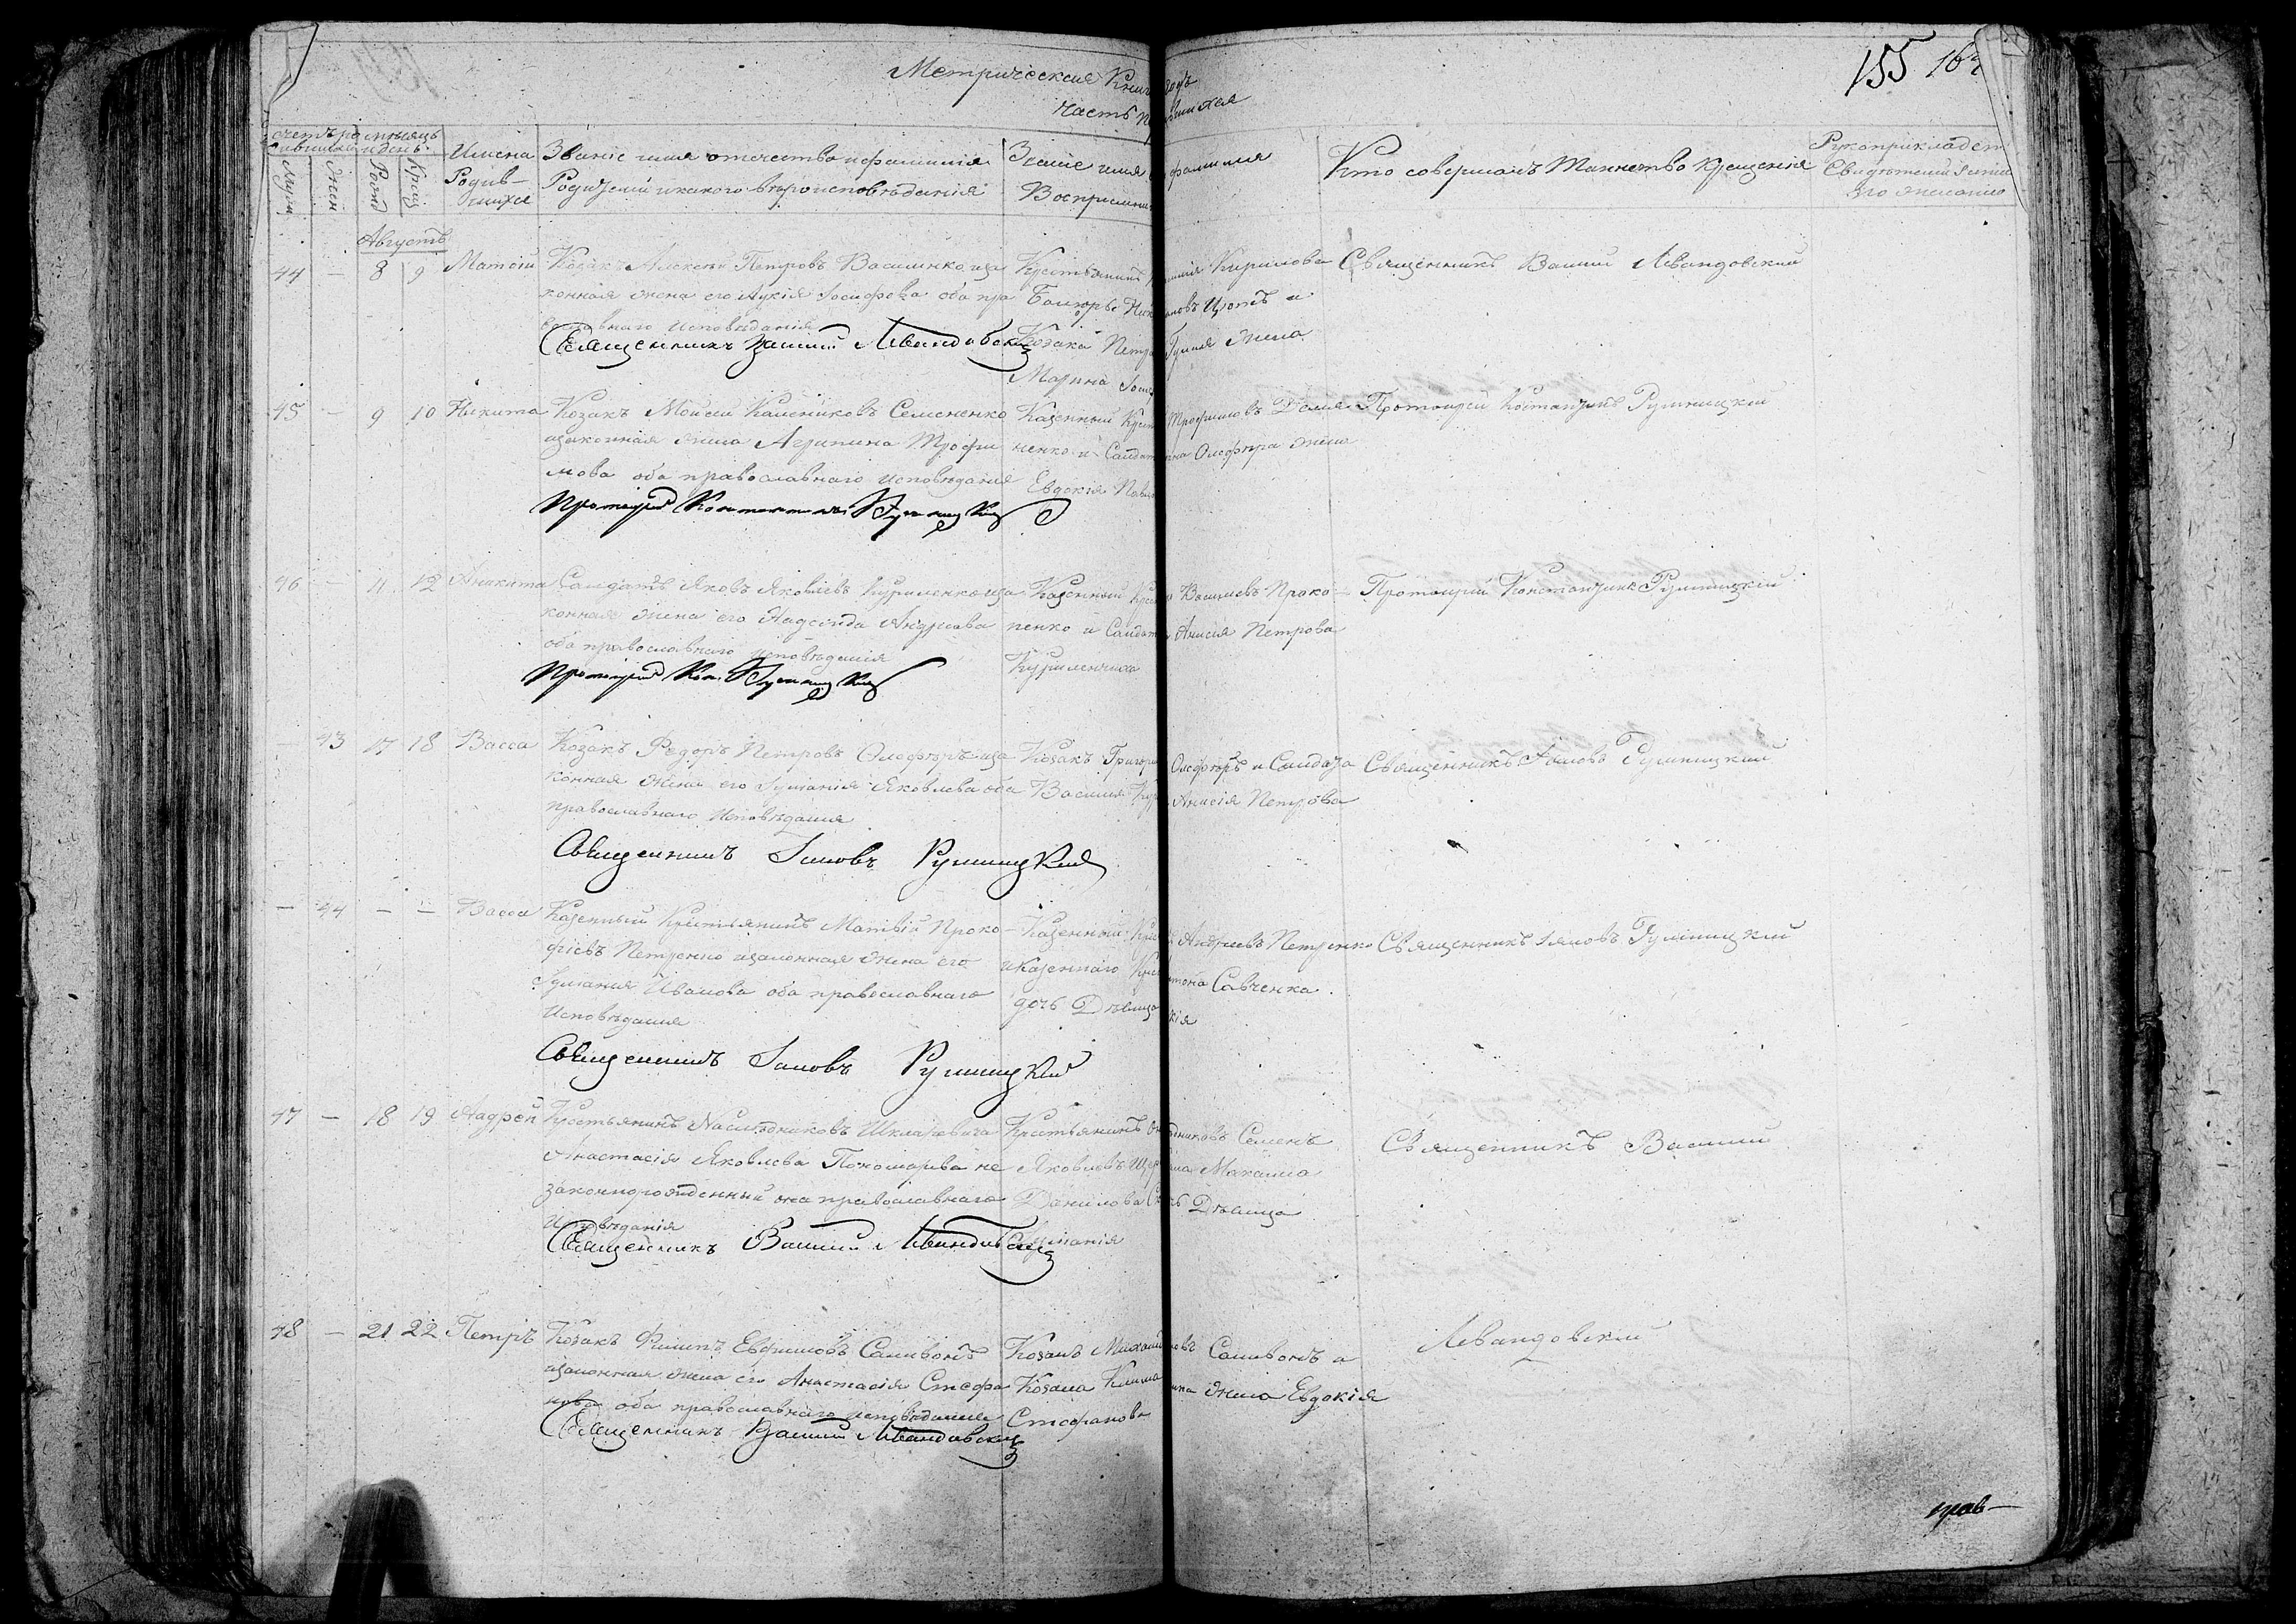 Метрическая Книг годъ
155 163
часть п
счетъ ро мѣсяцъ
и день
Имена Родив-шихся
Званіе имя отечество и фамилія
Родителей и какого вѣроисповѣданія
Званіе имя фамилія
Воспріемни
Кто совершалъ Таинство Крещенія
Рукоприкладст
Свидѣтелей
его желанію
Муж
Жен
Рожд
Крещ
Августъ
44 — 8 9 Матѳій
Козакъ Алексѣй Петровъ Василенко и за
конная жена его Іосифова оба пра
вославнаго исповѣданія
Священникъ Василій Левандовскій
Крестьянинъ Кирилова
и
Козака Петра жена
Марина
Священникъ Василій Левандовскій
45 — 9 10 Никита
Козакъ Моѵсей Семененко
и законная жена Агрипина Трофи
мова оба православнаго исповѣданія
Протоіерей Константинъ Румницкій
Казенный Крест Трофимовъ Деми
ненко и Салдат Олефѣра жена
Евдокія Павло
Протоіерей Константинъ Румницкій
46 — 11 12 Аникита
Салдатъ Яковъ Яковлевъ Куриленко и за
конная жена его Андреева
оба православнаго исповѣданія
Протоіерей Кон. Румницкій
Казенный Кре Васильевъ Проко-
пенко и Салдат Анисія Петрова
Куриленчиха
Протоіерей Константинъ Румницкій
— 43 17 18 Васса
Козакъ Федоръ Петровъ Олефѣръ и за
конная жена его Іуліанія Яковлева оба
православнаго исповѣданія
Священникъ Іаковъ Румницкій
Козакъ Григорі Олефѣръ и Салдата
Василія Кур Анисія Петрова
Священникъ Іаковъ Румницкій
— 44 — — Васса
Казенный Крестьянинъ Матвій Проко-
фіевъ Петренко и законная жена его
Іуліанія Иванова оба православнаго
исповѣданія
Священникъ Іаковъ Румницкій
Казенный Кре Андреевъ Петренко
и Казеннаго Кре Савченка
дочь Дѣвица
Священникъ Іаковъ Румницкій
47 — 18 19 Андрей
Крестьянинъ Наслѣдниковъ Шкляревича
Анастасія Яковлева Пономарева не
законнорожденный она православнаго
исповѣданія
Священникъ Василій Левандовскій
Крестьянинъ Семенъ
Яковлевъ Максима
Данилова Дѣвица
Іуліанія
Священникъ Василій
48 — 21 22 Петръ
Козакъ Филипъ Евфимовъ Саливонъ
и законная жена его Анастасія Стефа
нова оба православнаго исповѣданія
Священникъ Василій Левандовскій
Козакъ Михаил Саливонъ и
Козака Клима жена Евдокія
Стефанова
Левандовскій
прав-